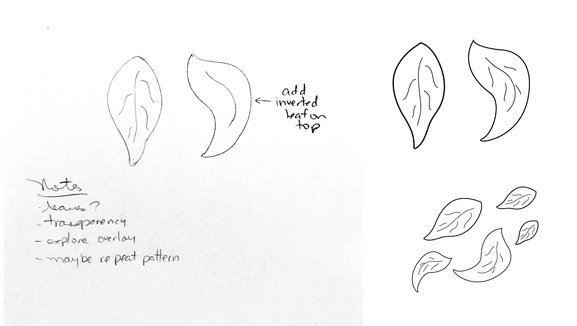 add
inverted
leaf on
top
Notes
- leaves?
- transparency
- explore overlay
- maybe repeat pattern